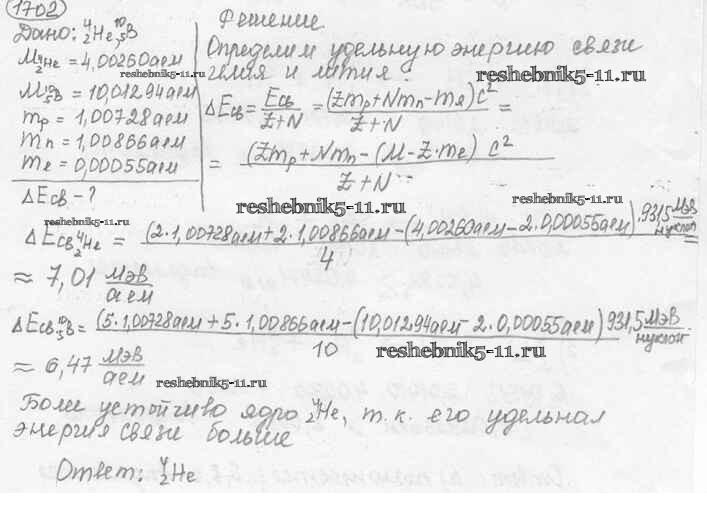 1702
Дано: ⁴₂He, ¹⁰₅B
M⁴₂He = 4,00260аем
M¹⁰₅B = 10,01294аем
mp = 1,00728аем
mn = 1,00866аем
me = 0,00055аем
ΔEсв - ?
Решение
Определим удельную энергию связи
гелия и лития:
ΔEсв = Eсв/(Z+N) = (Zmp+Nmn-mя)c²/(Z+N) =
= (Zmp+Nmn-(M-Z·me)c²/(Z+N)
ΔEсв⁴₂He = (2·1,00728аем+2·1,00866аем-(4,00260аем-2·0,00055аем)/4 · 931,5 МэВ/нуклон =
≈ 7,01 МэВ/аем
ΔEсв¹⁰₅B = (5·1,00728аем+5·1,00866аем-(10,01294аем-2·0,00055аем)/10 931,5 МэВ/нуклон.
≈ 6,47 МэВ/аем
Более устойчиво ядро ⁴₂He, т.к. его удельная
энергия связи больше
Ответ: ⁴₂He
reshebnik5-11.ru
reshebnik5-11.ru
reshebnik5-11.ru
reshebnik5-11.ru
reshebnik5-11.ru
reshebnik5-11.ru